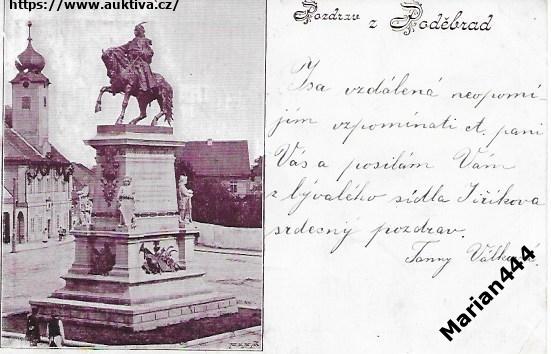 https://www.auktiva.cz/
Pozdrav z Poděbrad
Jsa vzdálená neopomí-
jím vzpomínati ct. paní
Vás a posílám Vám
z bývalého sídla Jiříkova
srdecný pozdrav.
Fanny
Marian444